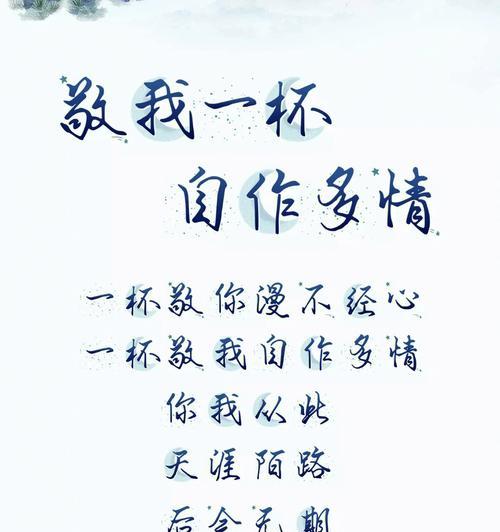 敬我一杯
自作多情
一杯敬你漫不经心
一杯敬我自作多情
你我从此
天涯陌路
后会无期